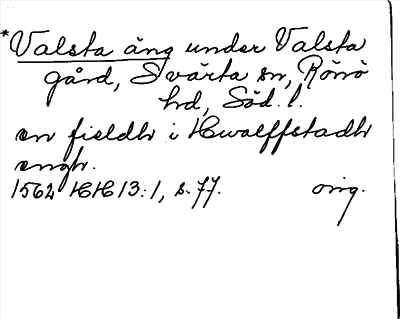 *Valsta äng under Valsta
gård, Svärta sn, Rönö
hd, Söd. l.
en fieldh i Hwalffstadh
engh.
1562 HH 13:1, s. 77. orig.